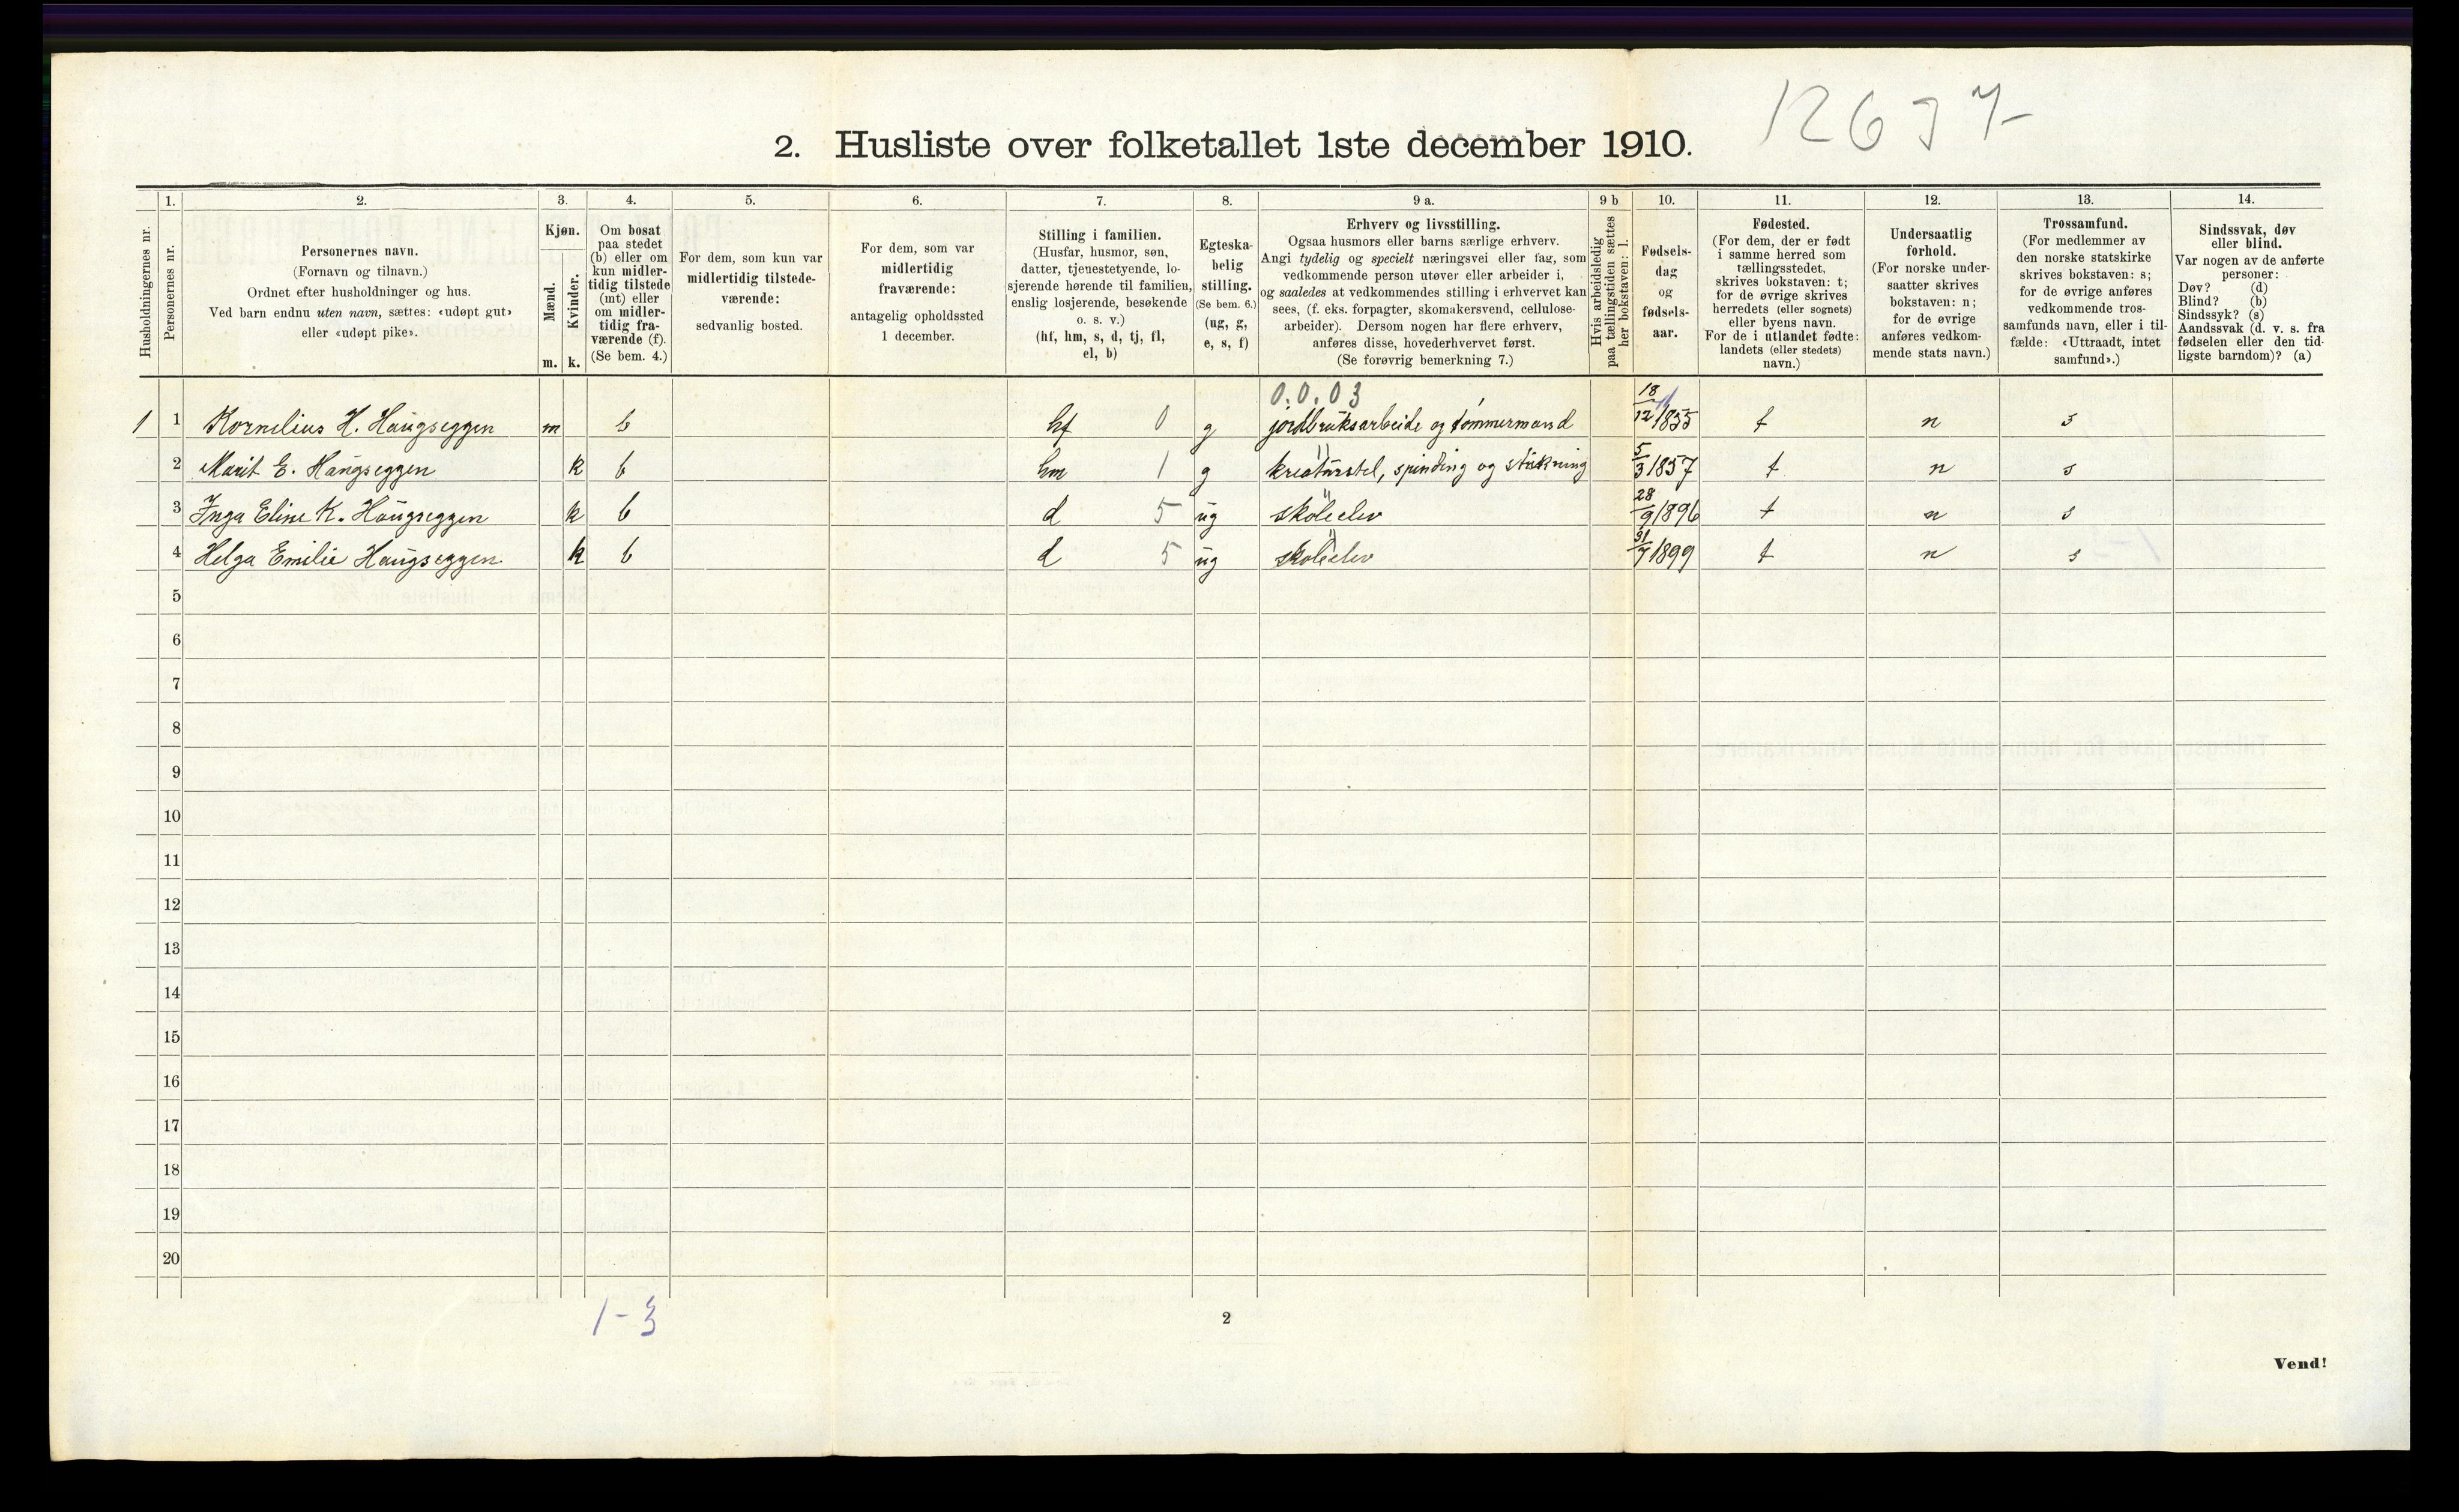 12637-
2. Husliste over folketallet 1ste december 1910.
Husholdningernes nr.
1.
Personernes nr.
2.
Personernes navn.
(Fornavn og tilnavn.)
Ordnet efter husholdninger og hus.
Ved barn endnu uten navn, sættes: «udøpt gut»
eller «udøpt pike».
3.
Kjøn.
Mænd.
m.
Kvinder.
k.
4.
Om bosat
paa stedet
(b) eller om
kun midler-
tidig tilstede
(mt) eller
om midler-
tidig fra-
værende (f).
(Se bem. 4.)
5.
For dem, som kun var
midlertidig tilstede-
værende:
sedvanlig bosted.
6.
For dem, som var
midlertidig
fraværende:
antagelig opholdssted
1 december.
7.
Stilling i familien.
(Husfar, husmor, søn,
datter, tjenestetyende, lo-
sjerende hørende til familien,
enslig losjerende, besøkende
o. s. v.)
(hf, hm, s, d, tj, fl,
el, b)
8.
Egteska-
belig
stilling.
(Se bem. 6.)
(ug, g,
e, s, f)
9 a.
Erhverv og livsstilling.
Ogsaa husmors eller barns særlige erhverv.
Angi tydelig og specielt næringsvei eller fag, som
vedkommende person utøver eller arbeider i,
og saaledes at vedkommendes stilling i erhvervet kan
sees, (f. eks. forpagter, skomakersvend, cellulose-
arbeider). Dersom nogen har flere erhverv,
anføres disse, hovederhvervet først.
(Se forøvrig bemerkning 7.)
9 b
Hvis arbeidsledig
paa tællingstiden sættes
her bokstaven: l.
10.
Fødsels-
dag
og
fødsels-
aar.
11.
Fødested.
(For dem, der er født
i samme herred som
tællingsstedet,
skrives bokstaven: t;
for de øvrige skrives
herredets (eller sognets)
eller byens navn.
For de i utlandet fødte:
landets (eller stedets)
navn.)
12.
Undersaatlig
forhold.
(For norske under-
saatter skrives
bokstaven: n;
for de øvrige
anføres vedkom-
mende stats navn.)
13.
Trossamfund.
(For medlemmer av
den norske statskirke
skrives bokstaven: s;
for de øvrige anføres
vedkommende tros-
samfunds navn, eller i til-
fælde: «Uttraadt, intet
samfund».)
14.
Sindssvak, døv
eller blind.
Var nogen av de anførte
personer:
Døv? (d)
Blind? (b)
Sindssyk? (s)
Aandssvak (d. v. s. fra
fødselen eller den tid-
ligste barndom)? (a)
0.0.03
1 1 Kornelius H. Haugseggen m b hf 0 g jordbruksarbeide og tømmermand 18/12 1855 t n s
2 Marit E. Haugseggen k b hm 1 g kreaturstel, spinding og strikning 5/3 1857 t n s
3 Inga Eline K. Haugseggen k b d 5 ug skoleelev 28/9 1896 t n s
4 Helga Emilie Haugseggen k b d 5 ug skoleelev 31/7 1899 t n s
5
6
7
8
9
10
11
12
13
14
15
16
17
18
19
20
1-3
2
Vend!